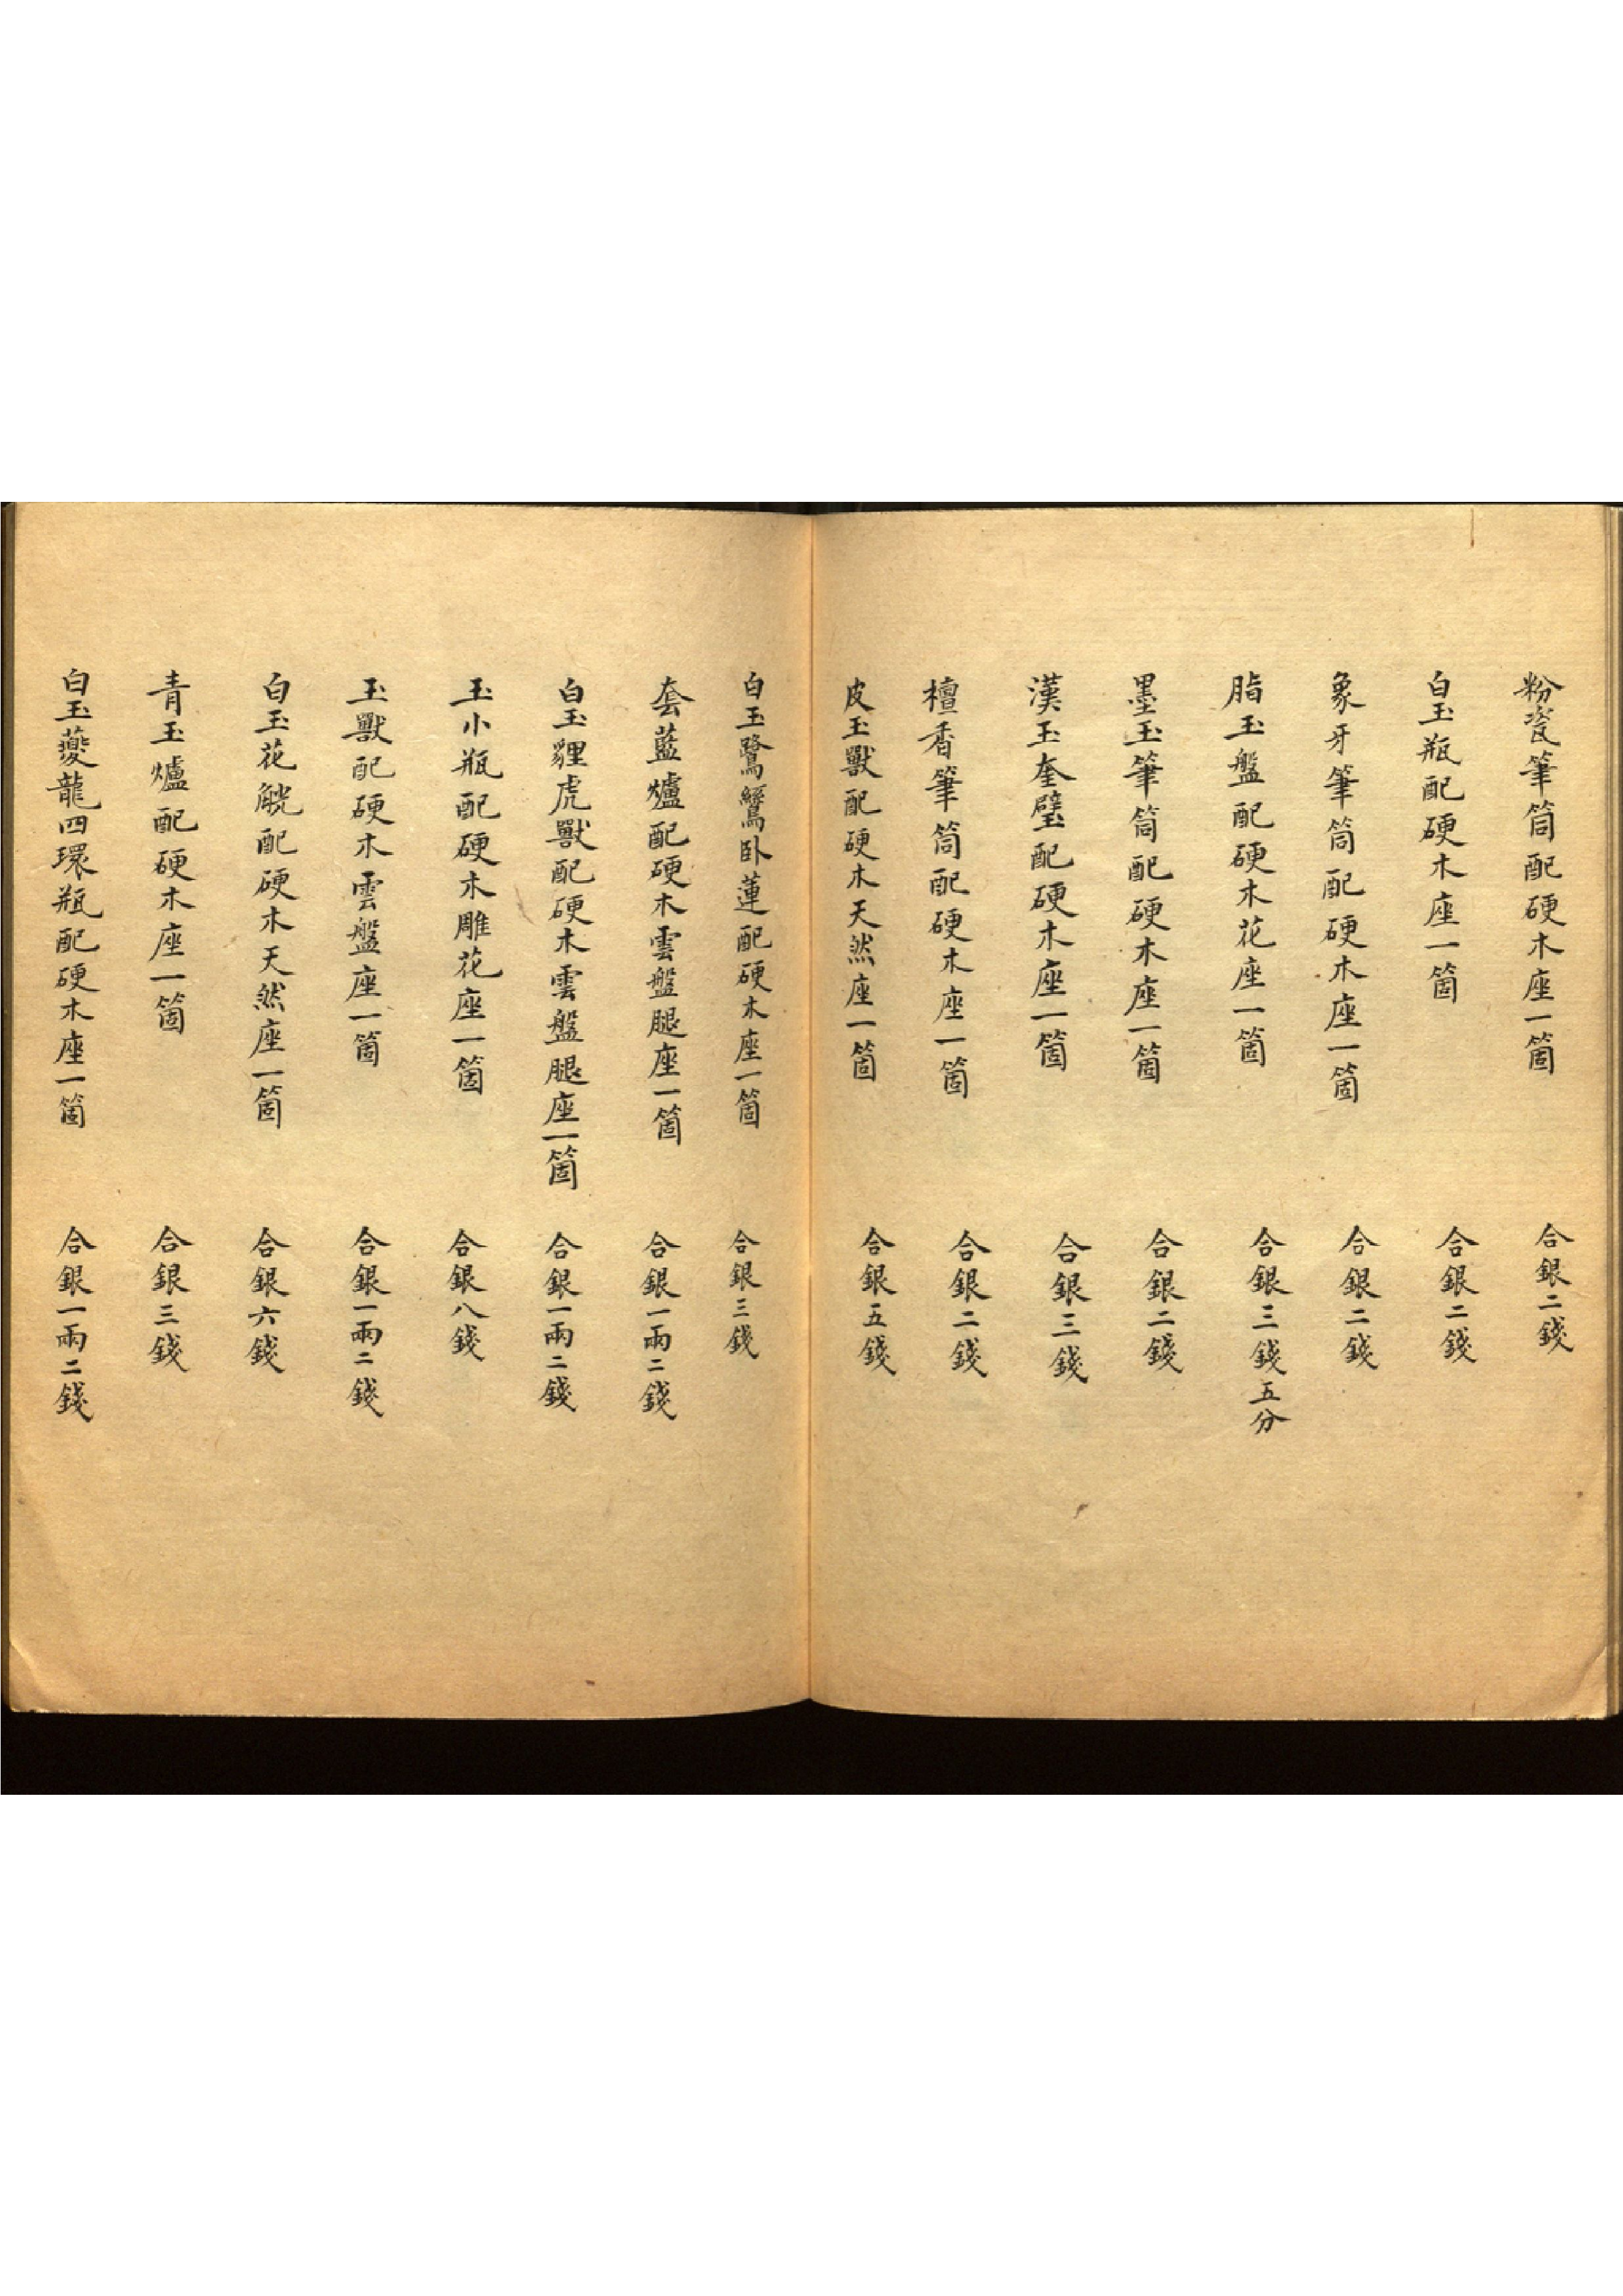 粉瓷筆筒配硬木座一箇 合銀二錢
白玉瓶配硬木座一箇 合銀二錢
象牙筆筒配硬木座一箇 合銀二錢
脂玉盤配硬木花座一箇 合銀三錢五分
墨玉筆筒配硬木座一箇 合銀二錢
漢玉奎璧配硬木座一箇 合銀三錢
檀香筆筒配硬木座一箇 合銀二錢
皮玉獸配硬木天然座一箇 合銀五錢
白玉鷺鷥卧蓮配硬木座一箇 合銀三錢
套藍爐配硬木雲盤腿座一箇 合銀一兩二錢
白玉貍虎獸配硬木雲盤腿座一箇 合銀一兩二錢
玉小瓶配硬木雕花座一箇 合銀八錢
玉獸配硬木雲盤座一箇 合銀一兩二錢
白玉花觥配硬木天然座一箇 合銀六錢
青玉爐配硬木座一箇 合銀三錢
白玉夔龍四環瓶配硬木座一箇 合銀一兩二錢